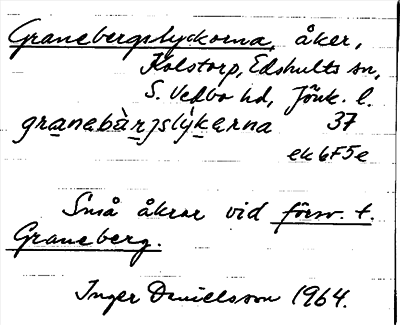 Granebergslyckorna, åker,
Kolstorp, Edshults sn,
S. Vedbo hd, Jönk. l.
granebàrjslỳkerna 37
ek 6F5e
Små åkrar vid försv. t.
Graneberg.
Inger Danielsson 1964.